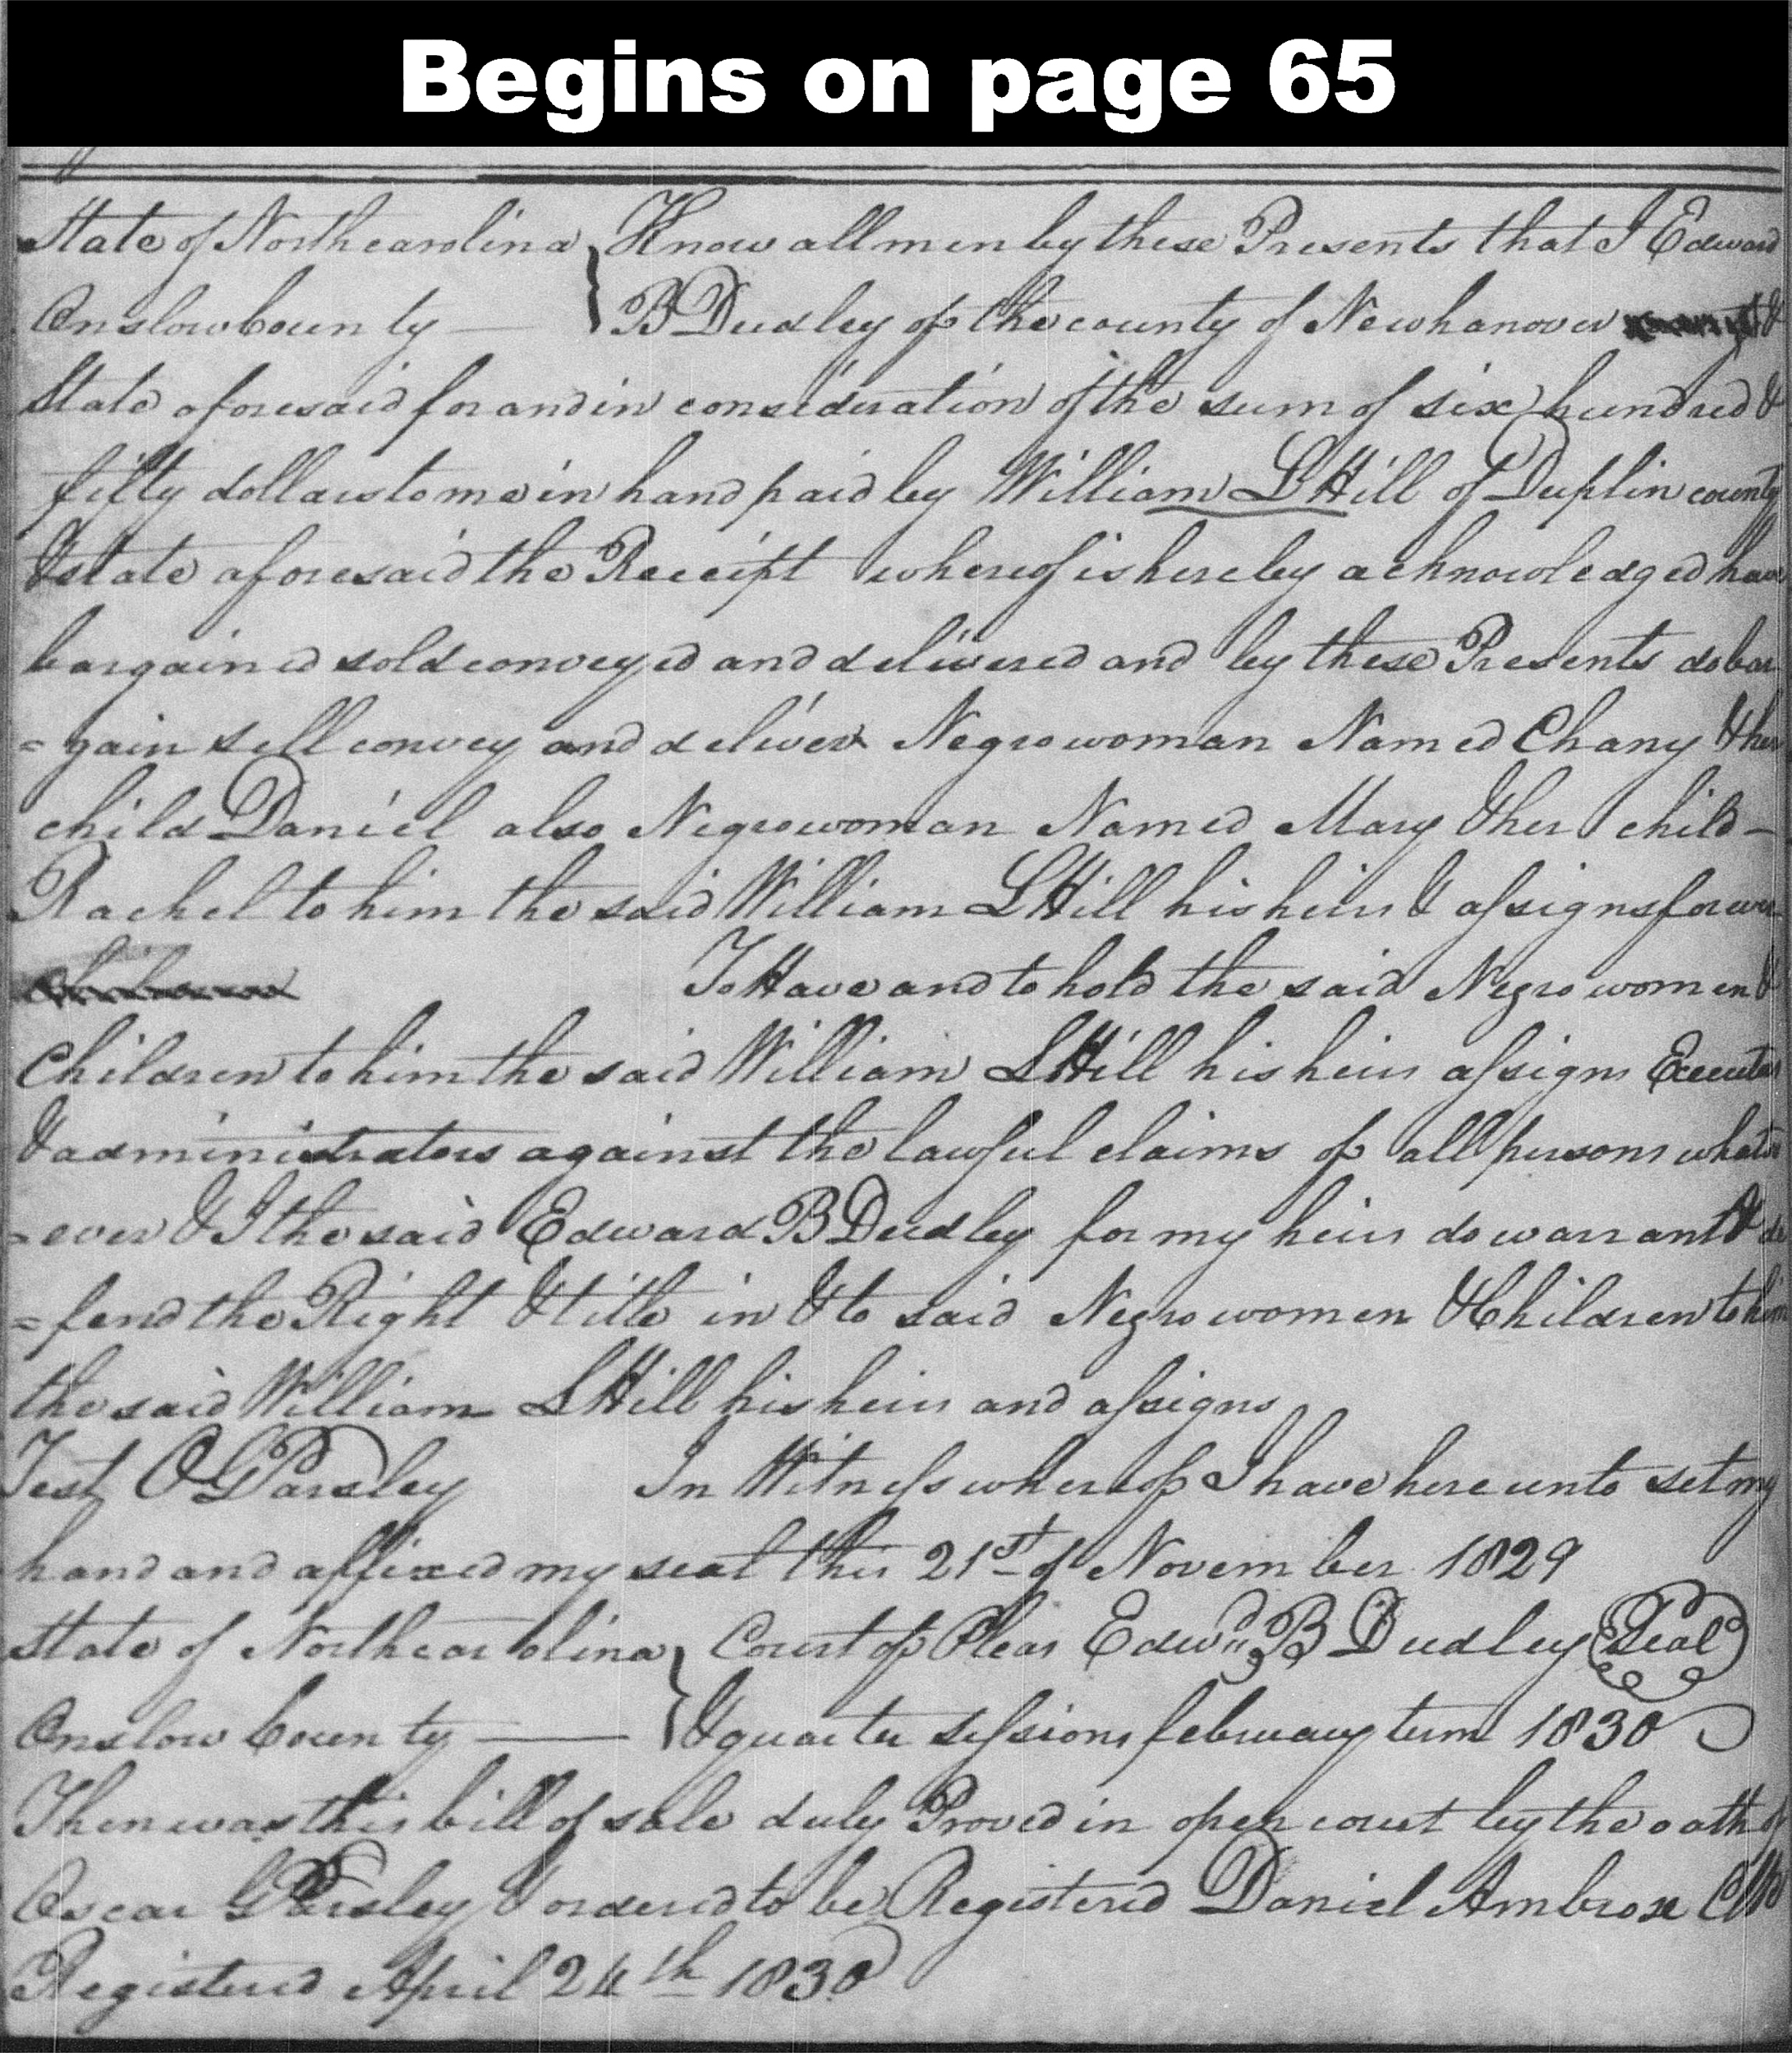 Begins on page 65
State of Northcarolina } Know all men by these Presents that I Edward
Onslow County — } B Dudley of the county of Newhanover &
State aforesaid for and in consideration of the sum of six hundred &
fifty dollars to me in hand paid by William L Hill of Duplin county
& state aforesaid the Receipt whereof is hereby acknowledged have
bargained sold conveyed and delivered and by these Presents do bar
= gain sell convey and deliver Negro woman Named Chany & her
child Daniel also Negro woman Named Mary & her child –
Rachel to him the said William L Hill his heirs & assigns forever
To Have and to hold the said Negro women &
Children to him the said William L Hill his heirs assigns Executors
& administrators against the lawful claims of all persons whatso
= ever & I the said Edward B Dudley for my heirs do warrant & de
= fend the Right & title in & to said Negro women & Children to him
the said William L Hill his heirs and assigns
Test O G Parsley In Witness whereof I have here unto set my
hand and affixed my seal this 21st of November 1829
State of Northcarolina } Court of Pleas Edwd B Dudley (Seal)
Onslow County — } & quarter sessions february term 1830
Then was this bill of sale duly Proved in open court by the oath of
Oscar G Parsley & ordered to be Registered Daniel Ambrose Clk
Registered April 24th 1830